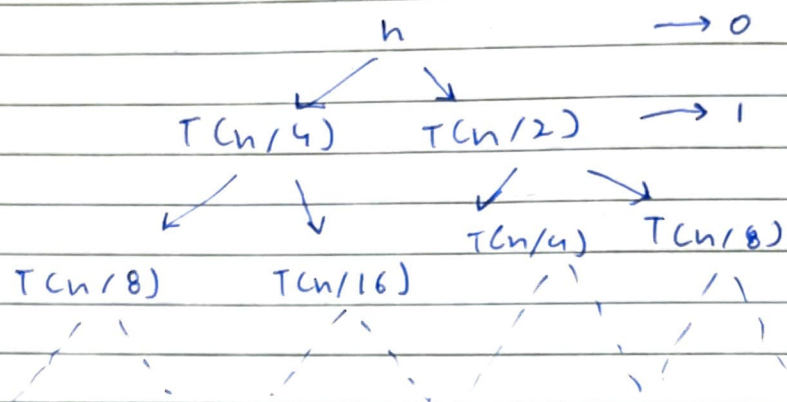 n → 0
T(n/4) T(n/2) → 1
T(n/4) T(n/8)
T(n/8) T(n/16)